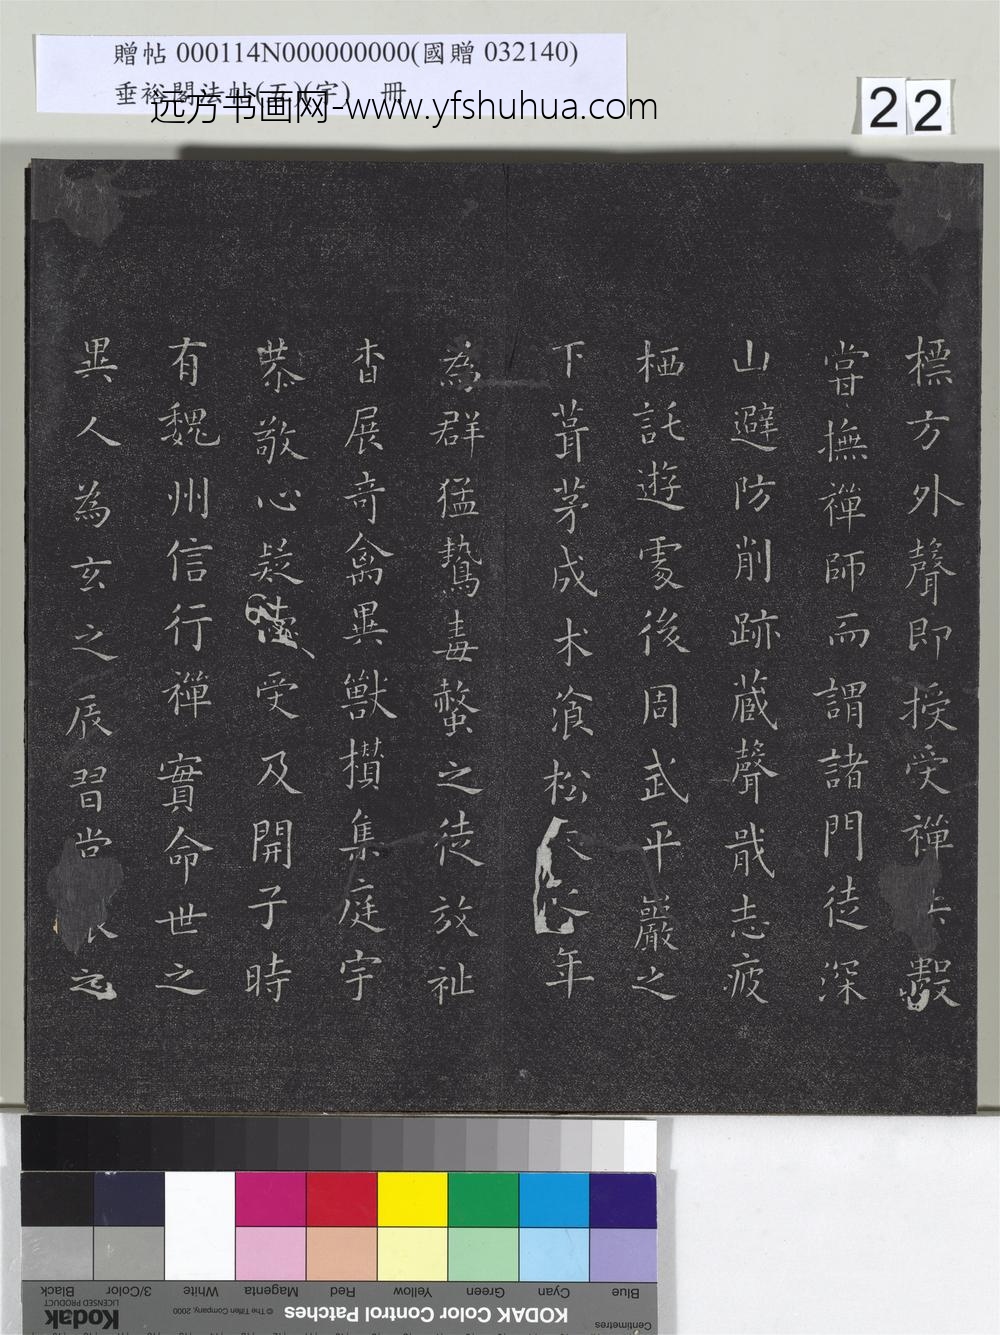 贈帖 000114N000000000(國贈 032140)
垂裕閣法帖(五)(宇) 冊
远方书画网-www.yfshuhua.com
22
標方外聲即授受禪
當撫禪師而謂諸門徒深
山避防削跡蔵聲戢志疲
栖託遊處後周武平巖之
下葺茅成木湌松 年
為群猛鷙毒螫之徒放祉
杳展奇禽異獸攅集庭宇
恭敬心疑 受及開子時
有魏州信行禪實命世之
異人為玄之辰習當 之
Blue Cyan Green Yellow Red Magenta White 3/Color Black
Centimetres
KODAK Color Control Patches
© The Tiffen Company, 2000
Kodak
LICENSED PRODUCT